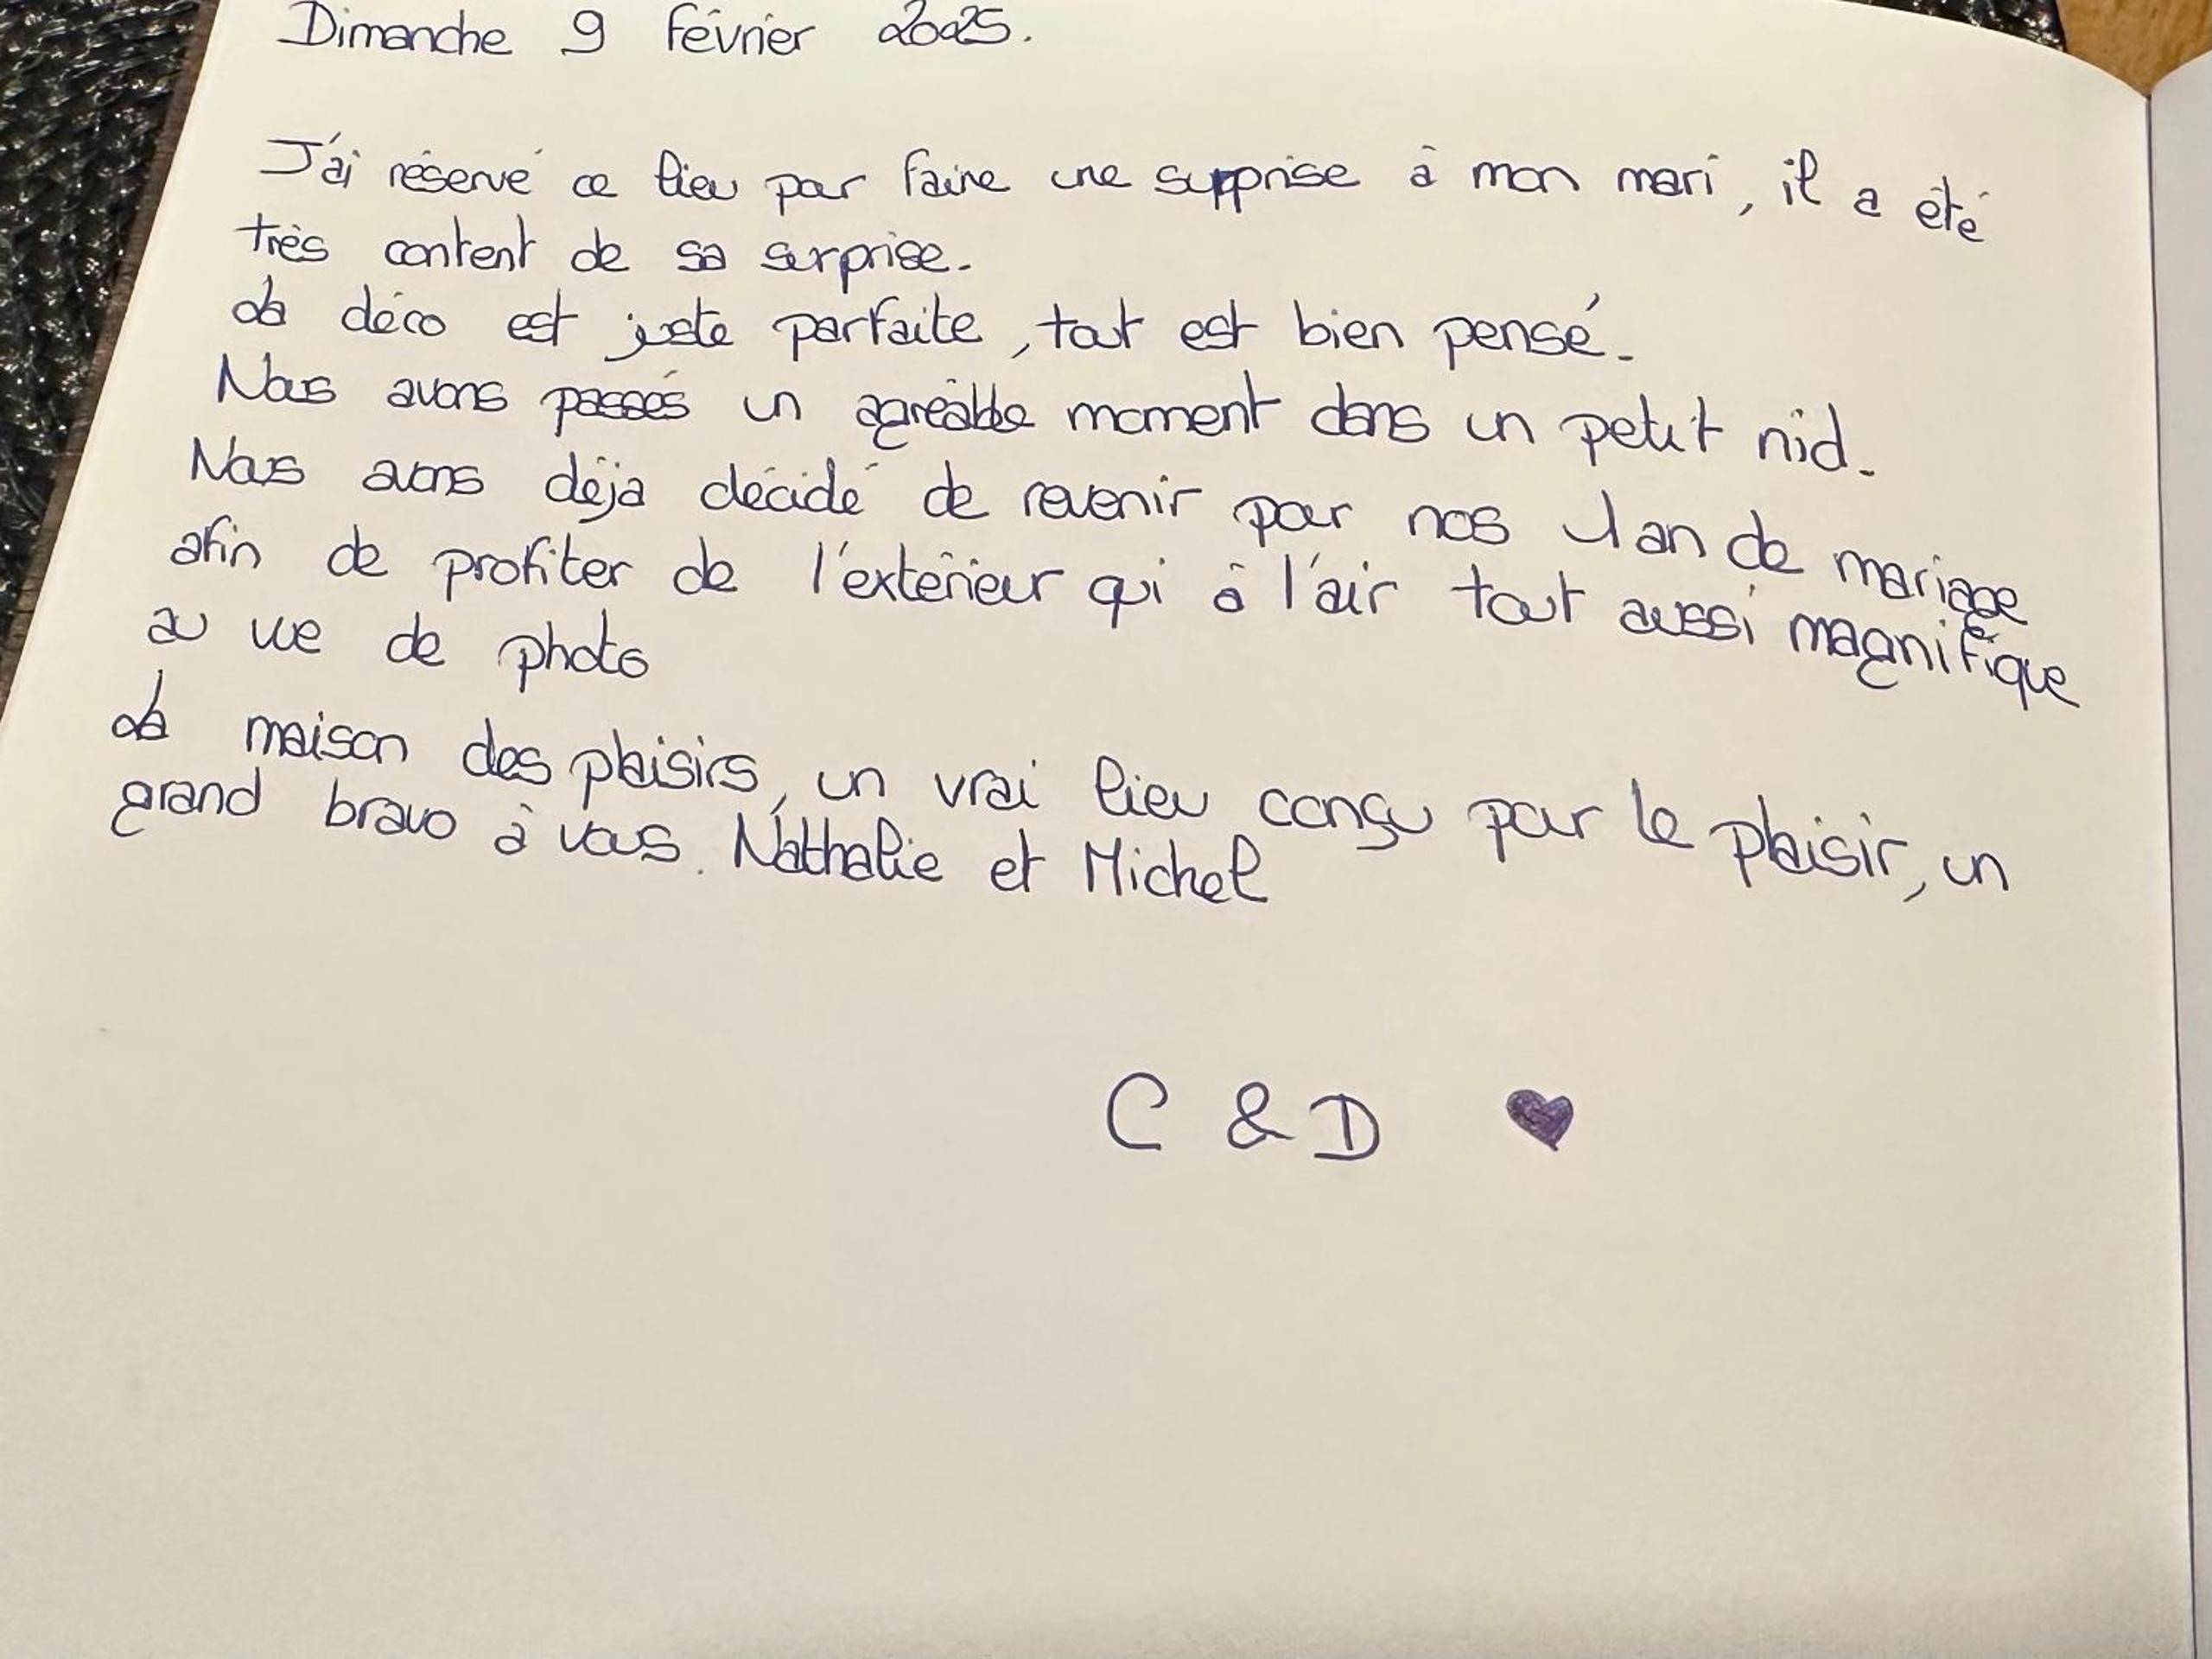 Dimanche 9 février 2025.
J'ai réservé ce lieu pour faire une supprise à mon mari, il a été
très content de sa surprise.
La déco est juste parfaite, tout est bien pensé.
Nous avons passés un agréable moment dans un petit nid.
Nous avons déja décidé de revenir pour nos 1 an de mariage
afin de profiter de l'extérieur qui à l'air tout aussi magnifique
au vue de photo
La maison des plaisirs, un vrai lieu conçu pour le plaisir, un
grand bravo à vous. Nathalie et Michel
C & D ♥